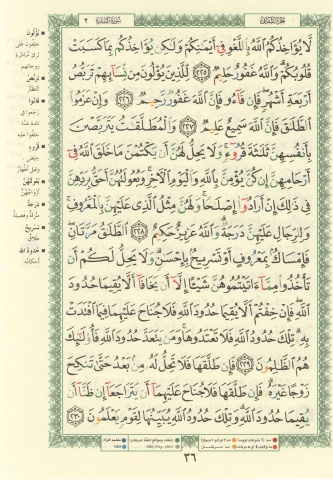 الجزء الثاني
سورة البقرة ٢
لَّا يُؤَاخِذُكُمُ ٱللَّهُ بِٱللَّغْوِ فِىٓ أَيْمَٰنِكُمْ وَلَٰكِن يُؤَاخِذُكُم بِمَا كَسَبَتْ
قُلُوبُكُمْ وَٱللَّهُ غَفُورٌ حَلِيمٌ ٢٢٥ لِّلَّذِينَ يُؤْلُونَ مِن نِّسَآئِهِمْ تَرَبُّصُ
أَرْبَعَةِ أَشْهُرٍ فَإِن فَآءُو فَإِنَّ ٱللَّهَ غَفُورٌ رَّحِيمٌ ٢٢٦ وَإِنْ عَزَمُوا۟
ٱلطَّلَٰقَ فَإِنَّ ٱللَّهَ سَمِيعٌ عَلِيمٌ ٢٢٧ وَٱلْمُطَلَّقَٰتُ يَتَرَبَّصْنَ
بِأَنفُسِهِنَّ ثَلَٰثَةَ قُرُوٓءٍ وَلَا يَحِلُّ لَهُنَّ أَن يَكْتُمْنَ مَا خَلَقَ ٱللَّهُ فِىٓ
أَرْحَامِهِنَّ إِن كُنَّ يُؤْمِنَّ بِٱللَّهِ وَٱلْيَوْمِ ٱلْءَاخِرِ وَبُعُولَتُهُنَّ أَحَقُّ بِرَدِّهِنَّ
فِى ذَٰلِكَ إِنْ أَرَادُوٓا۟ إِصْلَٰحًا وَلَهُنَّ مِثْلُ ٱلَّذِى عَلَيْهِنَّ بِٱلْمَعْرُوفِ
وَلِلرِّجَالِ عَلَيْهِنَّ دَرَجَةٌ وَٱللَّهُ عَزِيزٌ حَكِيمٌ ٢٢٨ ٱلطَّلَٰقُ مَرَّتَانِ
فَإِمْسَاكٌۢ بِمَعْرُوفٍ أَوْ تَسْرِيحٌۢ بِإِحْسَٰنٍ وَلَا يَحِلُّ لَكُمْ أَن
تَأْخُذُوا۟ مِمَّآ ءَاتَيْتُمُوهُنَّ شَيْـًٔا إِلَّآ أَن يَخَافَآ أَلَّا يُقِيمَا حُدُودَ
ٱللَّهِ فَإِنْ خِفْتُمْ أَلَّا يُقِيمَا حُدُودَ ٱللَّهِ فَلَا جُنَاحَ عَلَيْهِمَا فِيمَا ٱفْتَدَتْ
بِهِۦ تِلْكَ حُدُودُ ٱللَّهِ فَلَا تَعْتَدُوهَا وَمَن يَتَعَدَّ حُدُودَ ٱللَّهِ فَأُو۟لَٰٓئِكَ
هُمُ ٱلظَّٰلِمُونَ ٢٢٩ فَإِن طَلَّقَهَا فَلَا تَحِلُّ لَهُۥ مِنۢ بَعْدُ حَتَّىٰ تَنكِحَ
زَوْجًا غَيْرَهُۥ فَإِن طَلَّقَهَا فَلَا جُنَاحَ عَلَيْهِمَآ أَن يَتَرَاجَعَآ إِن ظَنَّآ أَن
يُقِيمَا حُدُودَ ٱللَّهِ وَتِلْكَ حُدُودُ ٱللَّهِ يُبَيِّنُهَا لِقَوْمٍ يَعْلَمُونَ ٢٣٠
يُؤْلُونَ
تَرَبُّصُ
فَآءُو
قُرُوٓءٍ
بُعُولَتُهُنَّ
دَرَجَةٌ
تَسْرِيحٌ
حُدُودُ ٱللَّهِ
٣٦